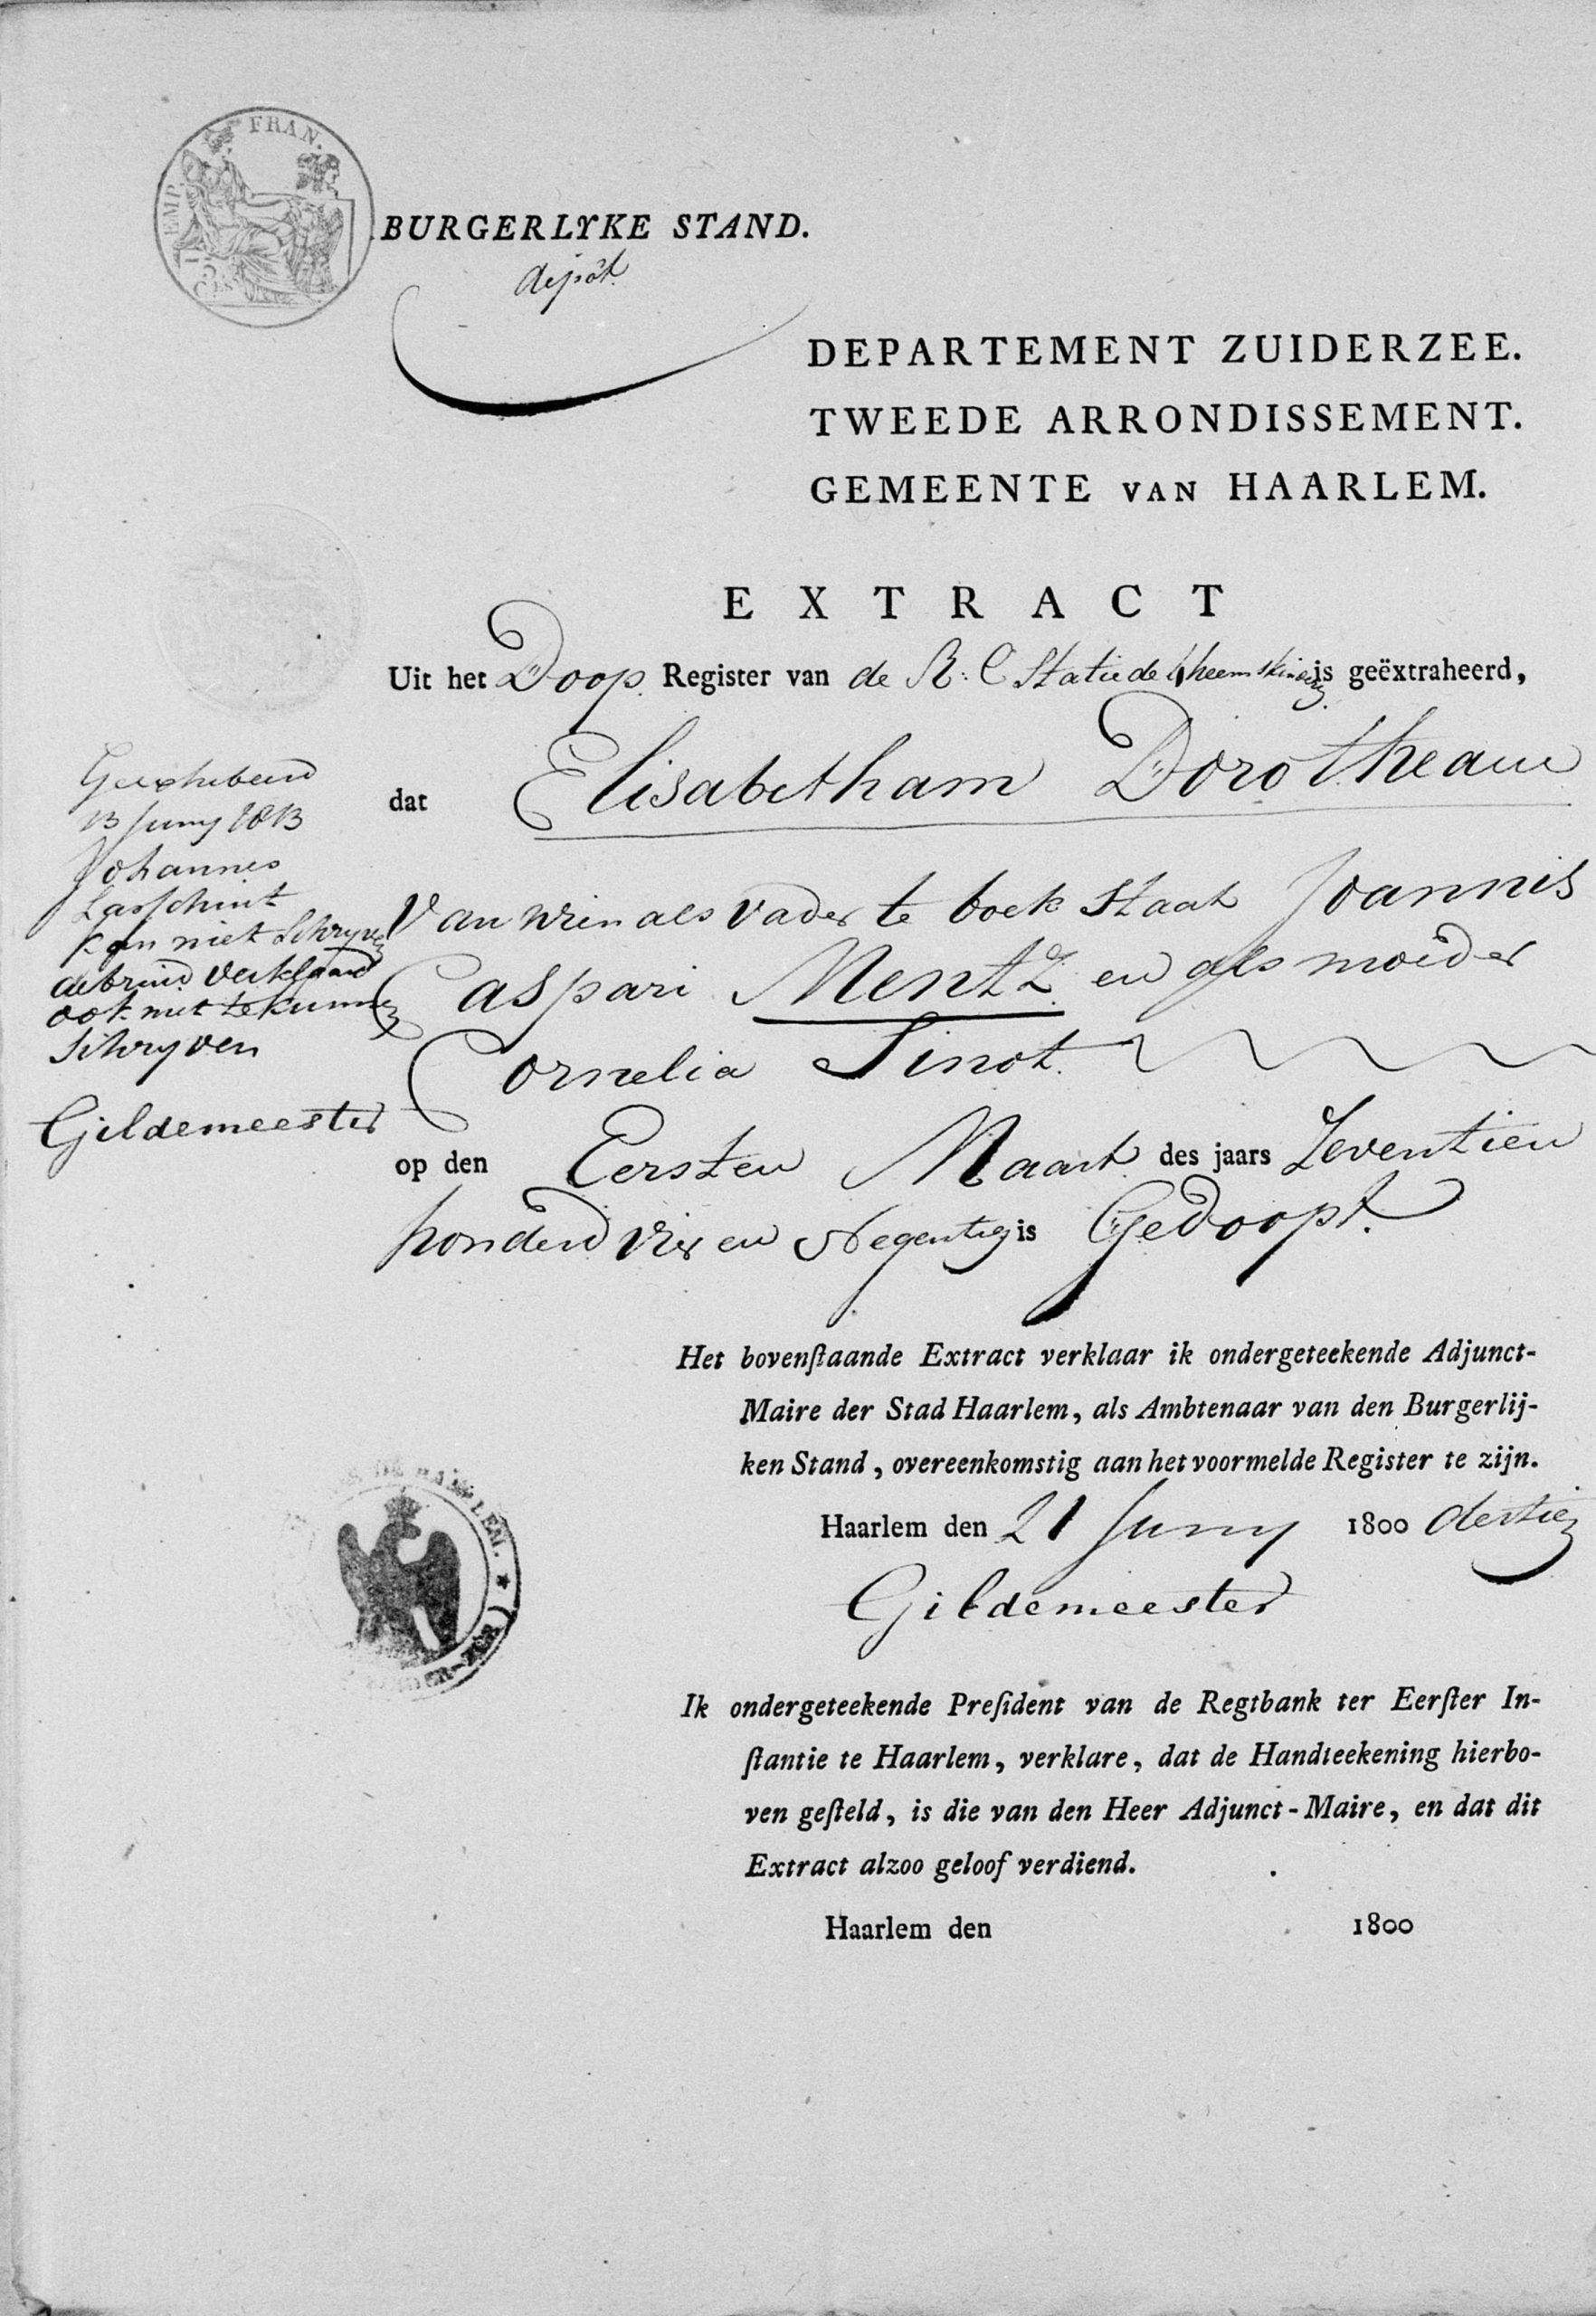 EMP. FRAN.
BURGERLYKE STAND.
depôt.
DEPARTEMENT ZUIDERZEE.
TWEEDE ARRONDISSEMENT.
GEMEENTE VAN HAARLEM.
EXTRACT
Uit het Doop Register van de R: C Statie de is geëxtraheerd,
dat Elisabetham Dorotheam
van wien als vader te boek staat Joannis
Caspari Mentz en als moeder
Cornelia Sinot.
op den Eersten Maart des jaars Zeventien
honderd vier en Negentig is Gedoopt.
Geexhibeerd
13 Juny 1813
Johannes
kan niet Schryven
de bruid verklaard
ook niet te kunnen
Schryven
Gildemeester
Het bovenſtaande Extract verklaar ik ondergeteekende Adjunct-
Maire der Stad Haarlem, als Ambtenaar van den Burgerlij-
ken Stand, overeenkomstig aan het voormelde Register te zijn.
Haarlem den 21 Juny 1800 dertien
Gildemeester
Ik ondergeteekende Preſident van de Regtbank ter Eerſter In-
ſtantie te Haarlem, verklare, dat de Handteekening hierbo-
ven geſteld, is die van den Heer Adjunct-Maire, en dat dit
Extract alzoo geloof verdiend.
Haarlem den 1800